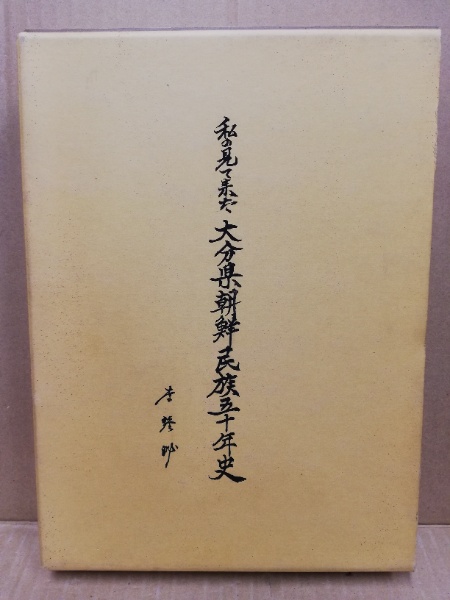 私の見て来た大分県朝鮮民族五十年史
李